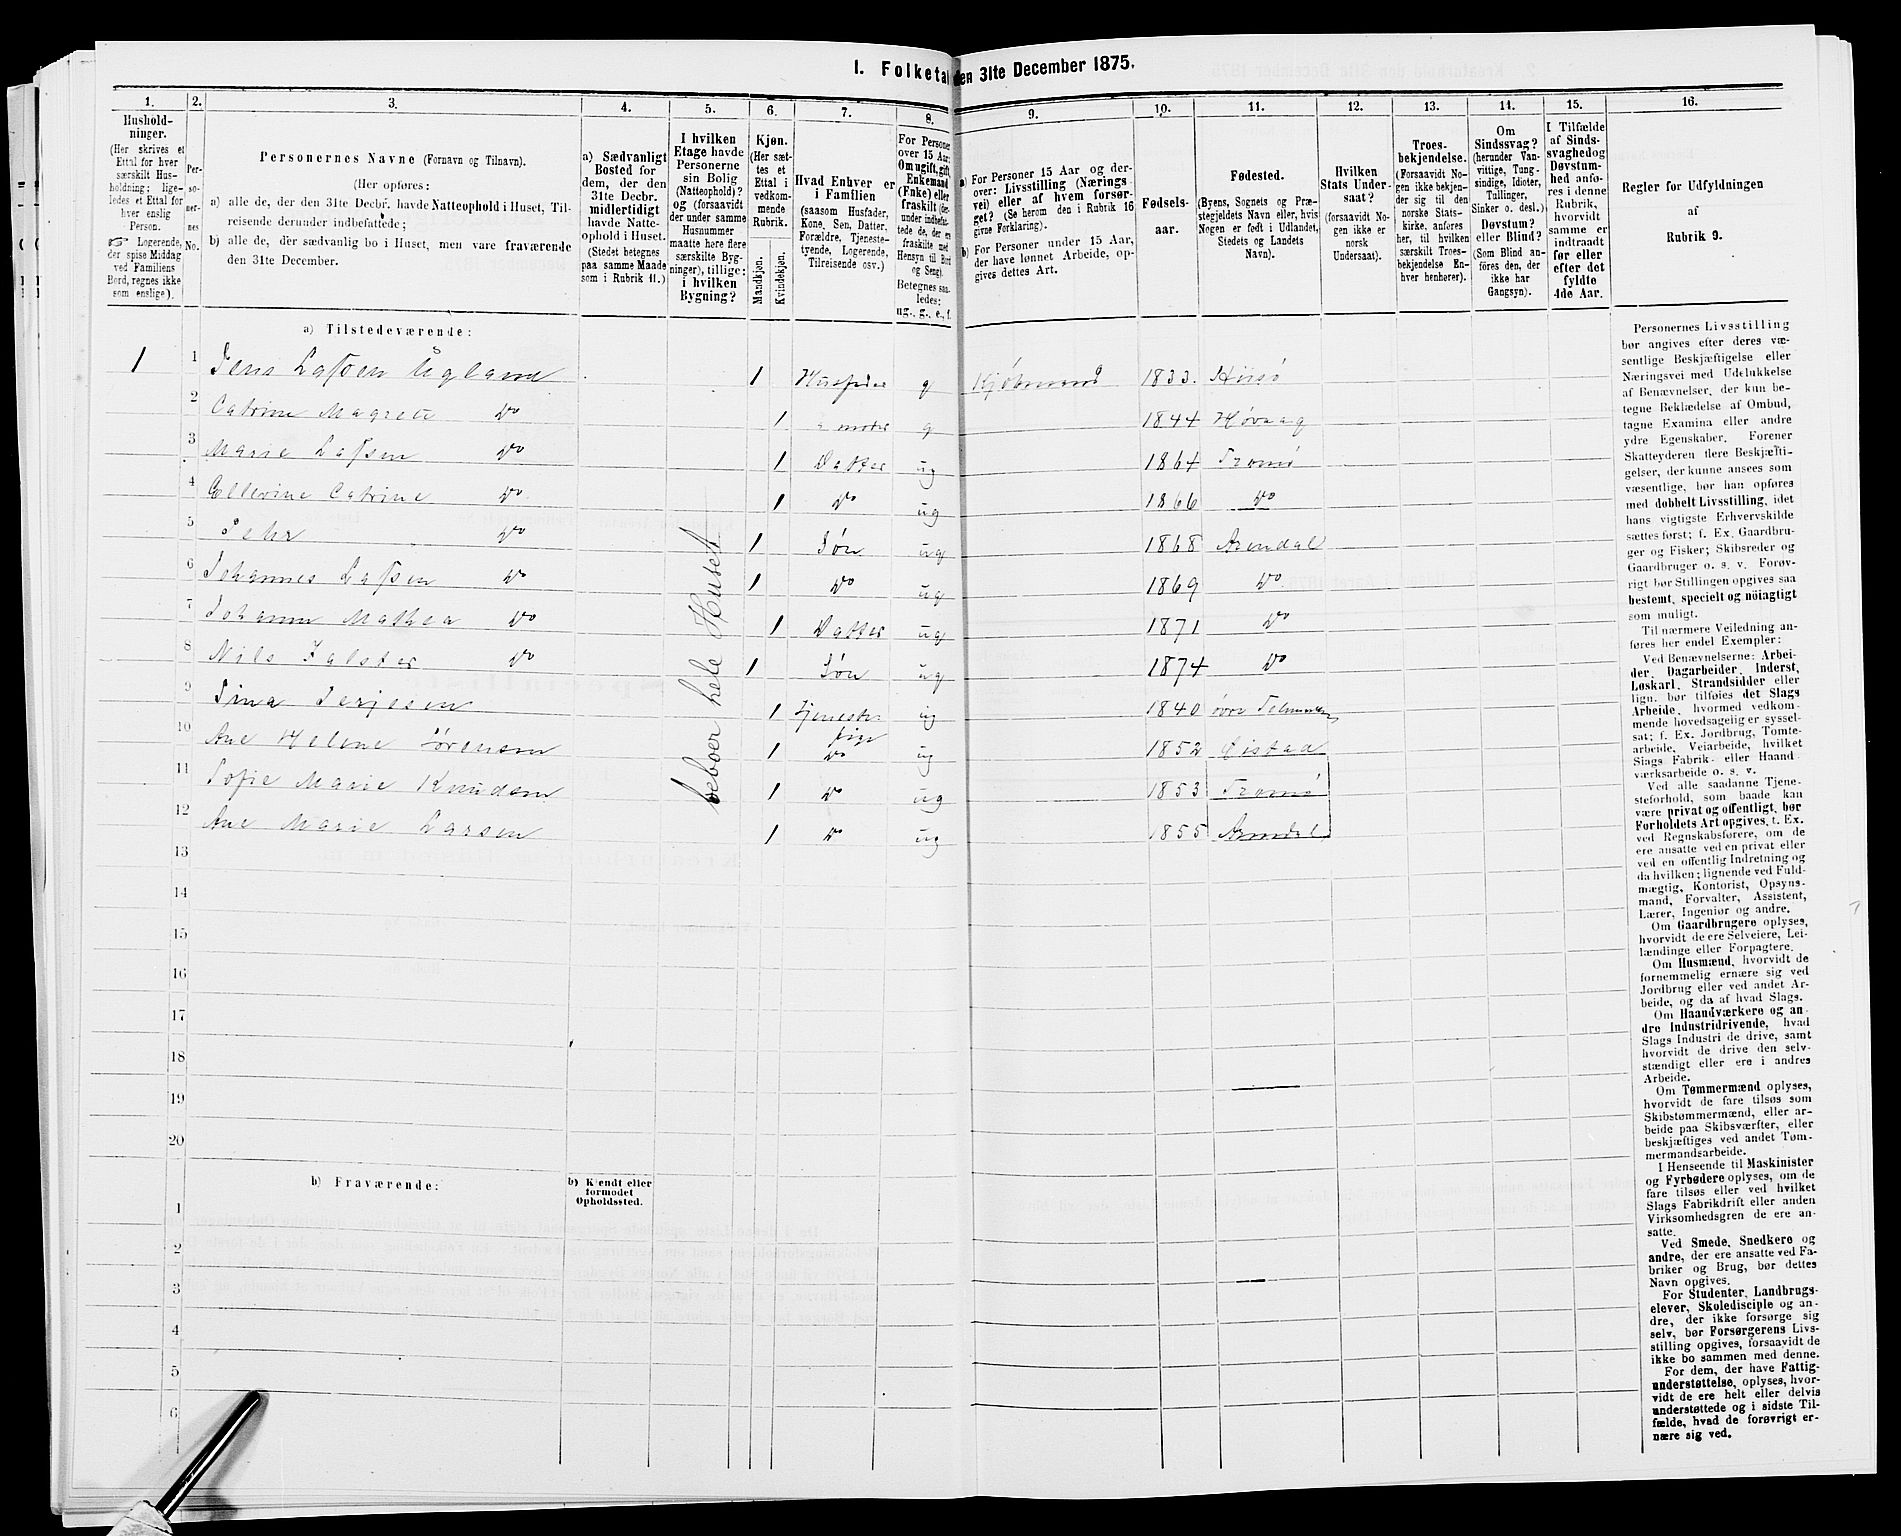 I. Folketal den 31te December 1875.
1. 2. 3. 4. 5. 6. 7. 8. 9. 10. 11. 12. 13. 14. 15. 16.
Hushold-
ninger.
(Her skrives et
Ettal for hver
særskilt Hus-
holdning; lige-
ledes et Ettal for
hver enslig
Person.
☞ Logerende,
der spise Middag
ved Familiens
Bord, regnes ikke
som enslige).
Per-
so-
ner-
nes
No.
Personernes Navne (Fornavn og Tilnavn).
(Her opføres:
a) alle de, der den 31te Decbr. havde Natteophold i Huset, Til-
reisende derunder indbefattede;
b) alle de, der sædvanlig bo i Huset, men vare fraværende
den 31te December.
a) Sædvanligt
Bosted for
dem, der den
31te Decbr.
midlertidigt
havde Natte-
ophold i Huset.
(Stedet betegnes
paa samme Maade
som i Rubrik 11.)
I hvilken
Etage havde
Personerne
sin Bolig
(Natteophold)?
og (forsaavidt
der under samme
Husnummer
maatte høre flere
særskilte Byg-
ninger), tillige:
i hvilken
Bygning?
Kjøn.
(Her sæt-
tes et
Ettal i
vedkom-
mende
Rubrik.
Mandkjøn.
Kvindekjøn.
Hvad Enhver er
i Familien
(saasom Husfader,
Kone, Søn, Datter,
Forældre, Tjeneste-
tyende, Logerende,
Tilreisende osv.)
For Personer
over 15 Aar:
Om ugift, gift,
Enkemand
(Enke) eller
fraskilt (der-
under indbefat-
tede de, der ere
fraskilte med
Hensyn til Bord
og Seng).
Betegnes saa-
ledes:
ug., g., e., f.
a) For Personer 15 Aar og der-
over: Livsstilling (Nærings-
vei) eller af hvem forsør-
get? (Se herom den i Rubrik 16
givne Forklaring).
b) For Personer under 15 Aar,
der have lønnet Arbeide, op-
gives dettes Art.
Fødsels-
aar.
Fødested.
(Byens, Sognets og Præ-
stegjeldets Navn eller, hvis
Nogen er født i Udlandet,
Stedets og Landets
Navn).
Hvilken
Stats Under-
saat?
(forsaavidt No-
gen ikke er
norsk
Undersaat).
Troes-
bekjendelse.
(Forsaavidt No-
gen ikke bekjen-
der sig til den
norske Stats-
kirke, anføres
her, til hvilken
særskilt Troes-
bekjendelse En-
hver henhører).
Om
Sindssvag?
(herunder Van-
vittige, Tung-
sindige, Idioter,
Tullinger,
Sinker o. desl.)
Døvstum?
eller Blind?
(Som Blind an-
føres den, der
ikke har
Gangsyn).
I Tilfælde
af Sinds-
svaghed og
Døvstum-
hed anfø-
res i denne
Rubrik,
hvorvidt
samme er
indtraadt
før eller
efter det
fyldte
4de Aar.
Regler for Udfyldningen
af
Rubrik 9.
a) Tilstedeværende:
1 1 Jens Lassen Ugland 1 Husfader g Kjøbmand 1833. Hisø
2 Catrine Magrete Do 1 moder g 1844 Høvaag
3 Marie Lassen Do 1 Datter ug 1864 Tromø
4 Ellevine Catrine Do 1 Do ug 1866 Do
5 Pehr Do 1 Søn ug 1868 Arendal
6 Johannes Lassen Do 1 Do ug 1869 Do
7 Johanne Mathea Do 1 Datter ug 1871 Do
8 Nils Falster Do 1 Søn ug 1874 Do
9 Tina Terjesen 1 tjeneste pige ug 1840 øvre Telemarken
10 Ane Helene Sørensen 1 Do ug 1852 Øiestad
11 Sofie Marie Knudsen 1 Do ug 1853 Tromø
12 Ane Marie Larsen 1 Do ug 1855 Arendal
beboer hele Huset
13
14
15
16
17
18
19
20
b) Fraværende:
b) Kjendt eller
formodet
Opholdssted.
1
2
3
4
5
6
Personernes Livsstilling
bør angives efter deres væ-
sentlige Beskjæftigelse eller
Næringsvei med Udelukkelse
af Benævnelser, der kun be-
tegne Beklædelse af Ombud,
tagne Examina eller andre
ydre Egenskaber. Forener
Skatteyderen flere Beskjæfti-
gelser, der kunne ansees som
væsentlige, bør han opføres
med dobbelt Livsstilling, idet
hans vigtigste Erhvervskilde
sættes først; f. Ex. Gaardbru-
ger og Fisker; Skibsreder og
Gaardbruger o. s. v. Forøv-
rigt bør Stillingen opgives saa
bestemt, specielt og nöiagtigt
som muligt.
Til nærmere Veiledning an-
føres her endel Exempler:
Ved Benævnelserne: Arbei-
der, Dagarbeider, Inderst,
Løskarl, Strandsidder eller
lign. bør tilføies det Slags
Arbeide, hvormed vedkom-
mende hovedsagelig er syssel-
sat; f. Ex. Jordbrug, Tomte-
arbeide, Veiarbeide, hvilket
Slags Fabrik- eller Haand
værksarbeide o. s. v.
Ved alle saadanne Tjene-
steforhold, som baade kan
være privat og offentligt, bør
Forholdets Art opgives, t. Ex.
ved Regnskabsførere, om de
ere ansatte ved en privat eller
ved en offentlig Indretning og
da hvilken; lignende ved Fuld-
mægtig, Kontorist, Opsyns-
mand, Forvalter, Assistent,
Lærer, Ingeniør og andre.
Om Gaardbrugere oplyses,
hvorvidt de ere Selveiere, Lei-
lændinge eller Forpagtere.
Om Husmænd, hvorvidt de
fornemmelig ernære sig ved
Jordbrug eller ved andet Ar-
beide, og da af hvad Slags.
Om Haandværkere og an-
dre Industridrivende, hvad
Slags Industri de drive, samt
hvorvidt de drive den selv-
stændigt eller ere i andres
Arbeide.
Om Tømmermænd oplyses,
hvorvidt de fare tilsøs som
Skibstømmermænd, eller ar-
beide paa Skibsværfter, eller
beskjæftiges ved andet Tøm-
mermandsarbeide.
I Henseende til Maskinister
og Fyrbødere oplyses, om de
fare tilsøs eller ved hvilket
Slags Fabrikdrift eller anden
Virksomhedsgren de ere an-
satte.
Ved Smede, Snedkere og
andre, der ere ansatte ved Fa-
briker og Brug, bør dettes
Navn opgives.
For Studenter, Landbrugs-
elever, Skoledisciple og an-
dre, der ikke forsørge sig
selv, bør Forsørgerens Livs-
stilling opgives, forsaavidt de
ikke bo sammen med denne.
For dem, der have Fattig-
understøttelse, oplyses, hvor-
vidt de ere helt eller delvis
understøttede og i sidste Til-
fælde, hvad de forøvrigt er-
nære sig ved.